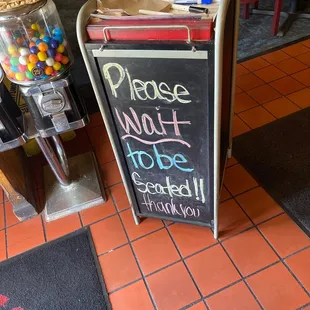 Please
wait
to be
Seated!!
thank you